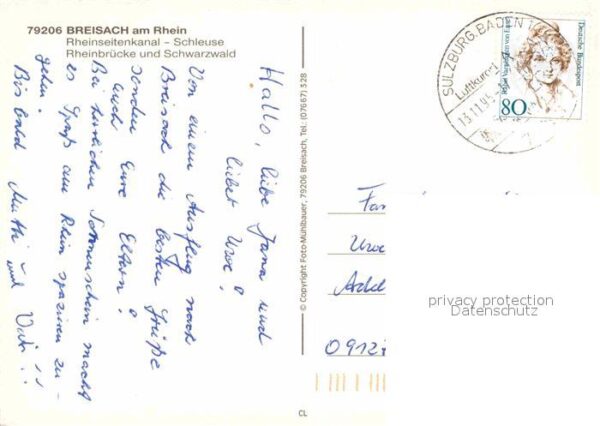 79206 BREISACH am Rhein
Rheinseitenkanal – Schleuse
Rheinbrücke und Schwarzwald
Hallo, liebe Jana und
lieber Uwe!
Von einem Ausflug nach
Breisach die besten Grüße
senden Euch Eure Eltern!
Bei herrlichem Sonnenschein macht
es Spaß am Rhein spazieren zu
gehen!
Bis bald Mutti und Vati!!
© Copyright Foto-Mühlbauer, 79206 Breisach, Tel.: (07667) 528
SULZBURG, BADEN 1
Luftkurort
13.11.95
Deutsche Bundespost
80
Fam
Uwe
0912
privacy protection
Datenschutz
CL